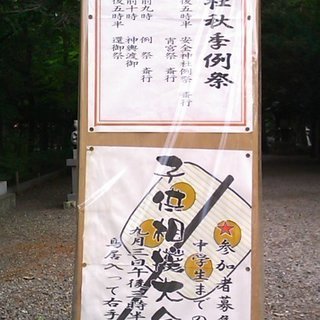 社秋季例祭
後五時半 安全神社例祭 斎行
宵宮祭 斎行
前九時 例祭 斎行
前十時 神輿渡御
後五時半 還御祭
参加者募集
中学生までの
子供相撲大会
九月三日午後三時半
鳥居入って右手